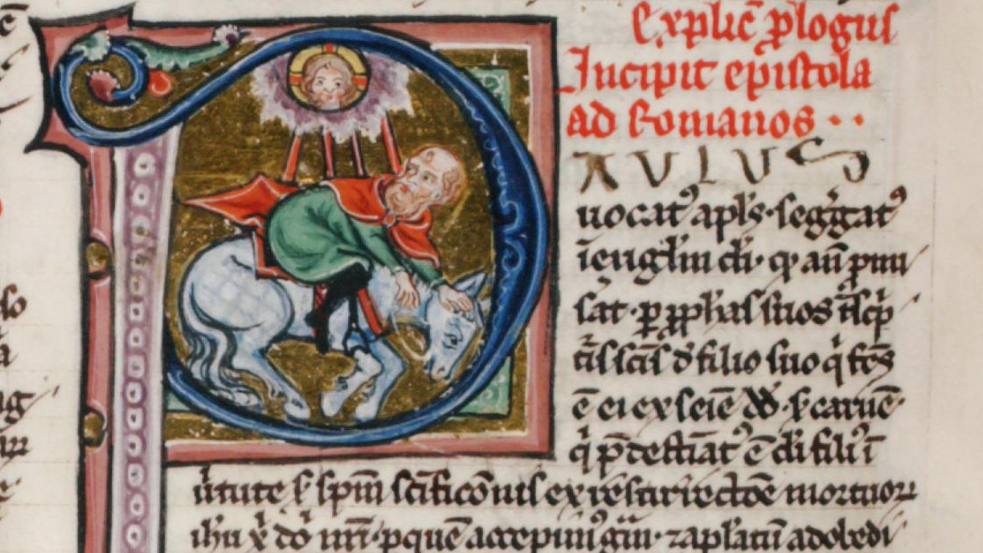 Explic̄ p̄logus
Incipit epistola
ad Romanos··
PAULUS
uocatꝰ apl̄s· seg̓gatꝰ
ī eūgl̄ium di̅· qͥ an̄ p̄mi
sat· ꝑ ꝓph̄as suos ī sc̓p
tīs sc̄īs d̓ filio suo qͥ fc̄s
ē ei ex seīe dd̄· s̄ carnē·
qͥ p̄destīatꝰ ē di̅ filiꝰ ī
ūtute s̄ spm̄ sc̄ificōnis ex resurrectōe mortuoꝝ
ih̄u xp̄i dn̄i nr̄i· p quē accepimꝰ gr̄am· ⁊ apl̄atū ad obedi